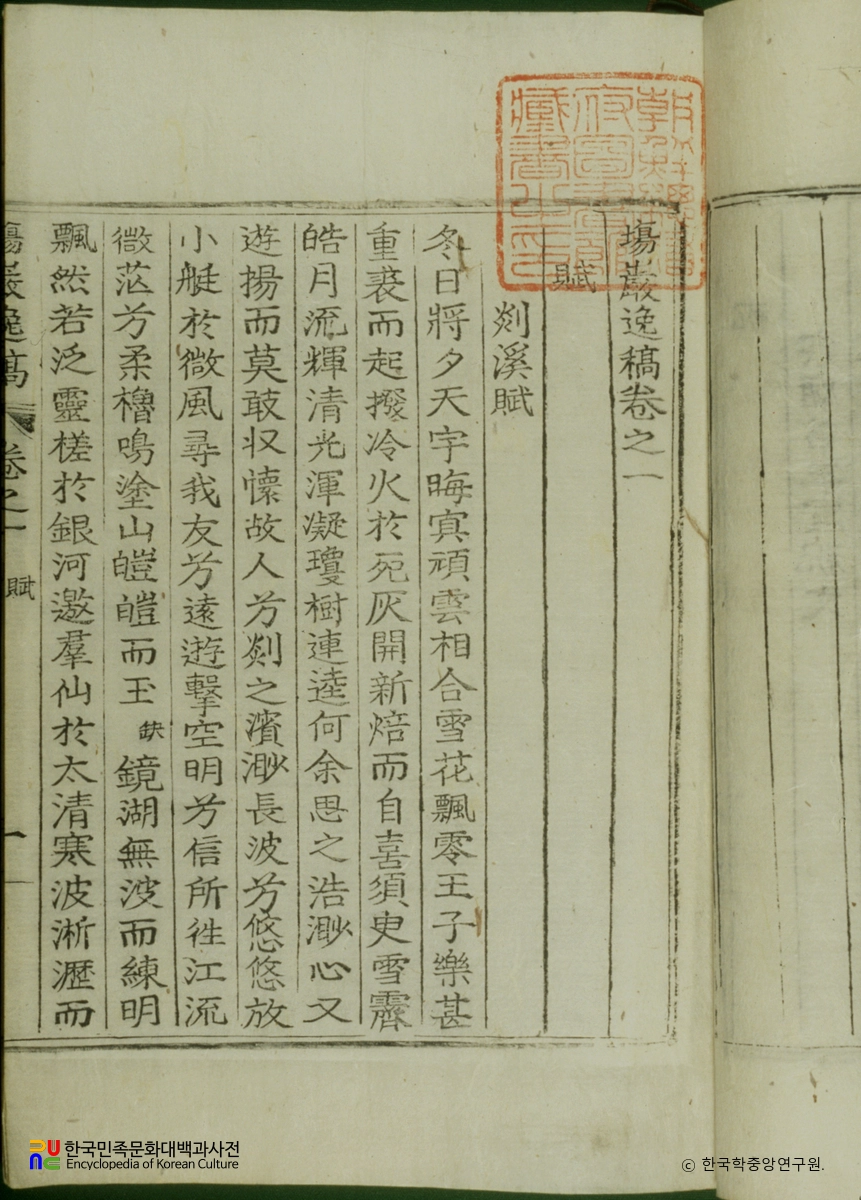 塲巖逸稿卷之一
賦
剡溪賦
冬日將夕天宇晦冥頑雲相合雪花飄零王子樂甚
重裘而起撥冷火於死灰開新焙而自喜須臾雪霽
皓月流輝清光渾凝瓊樹連逵何余思之浩渺心又
遊揚而莫敢収懷故人兮剡之濱渺長波兮悠悠放
小艇於微風尋我友兮遠遊擊空明兮信所徃江流
微茫兮柔櫓鳴塗山皚皚而玉缺鏡湖無波而練明
飄然若泛靈槎於銀河邀羣仙於太清寒波淅瀝而
塲巖逸稿 卷之一 賦 一
朝鮮總督府圖書館藏書之印
한국민족문화대백과사전
Encyclopedia of Korean Culture
ⓒ 한국학중앙연구원.